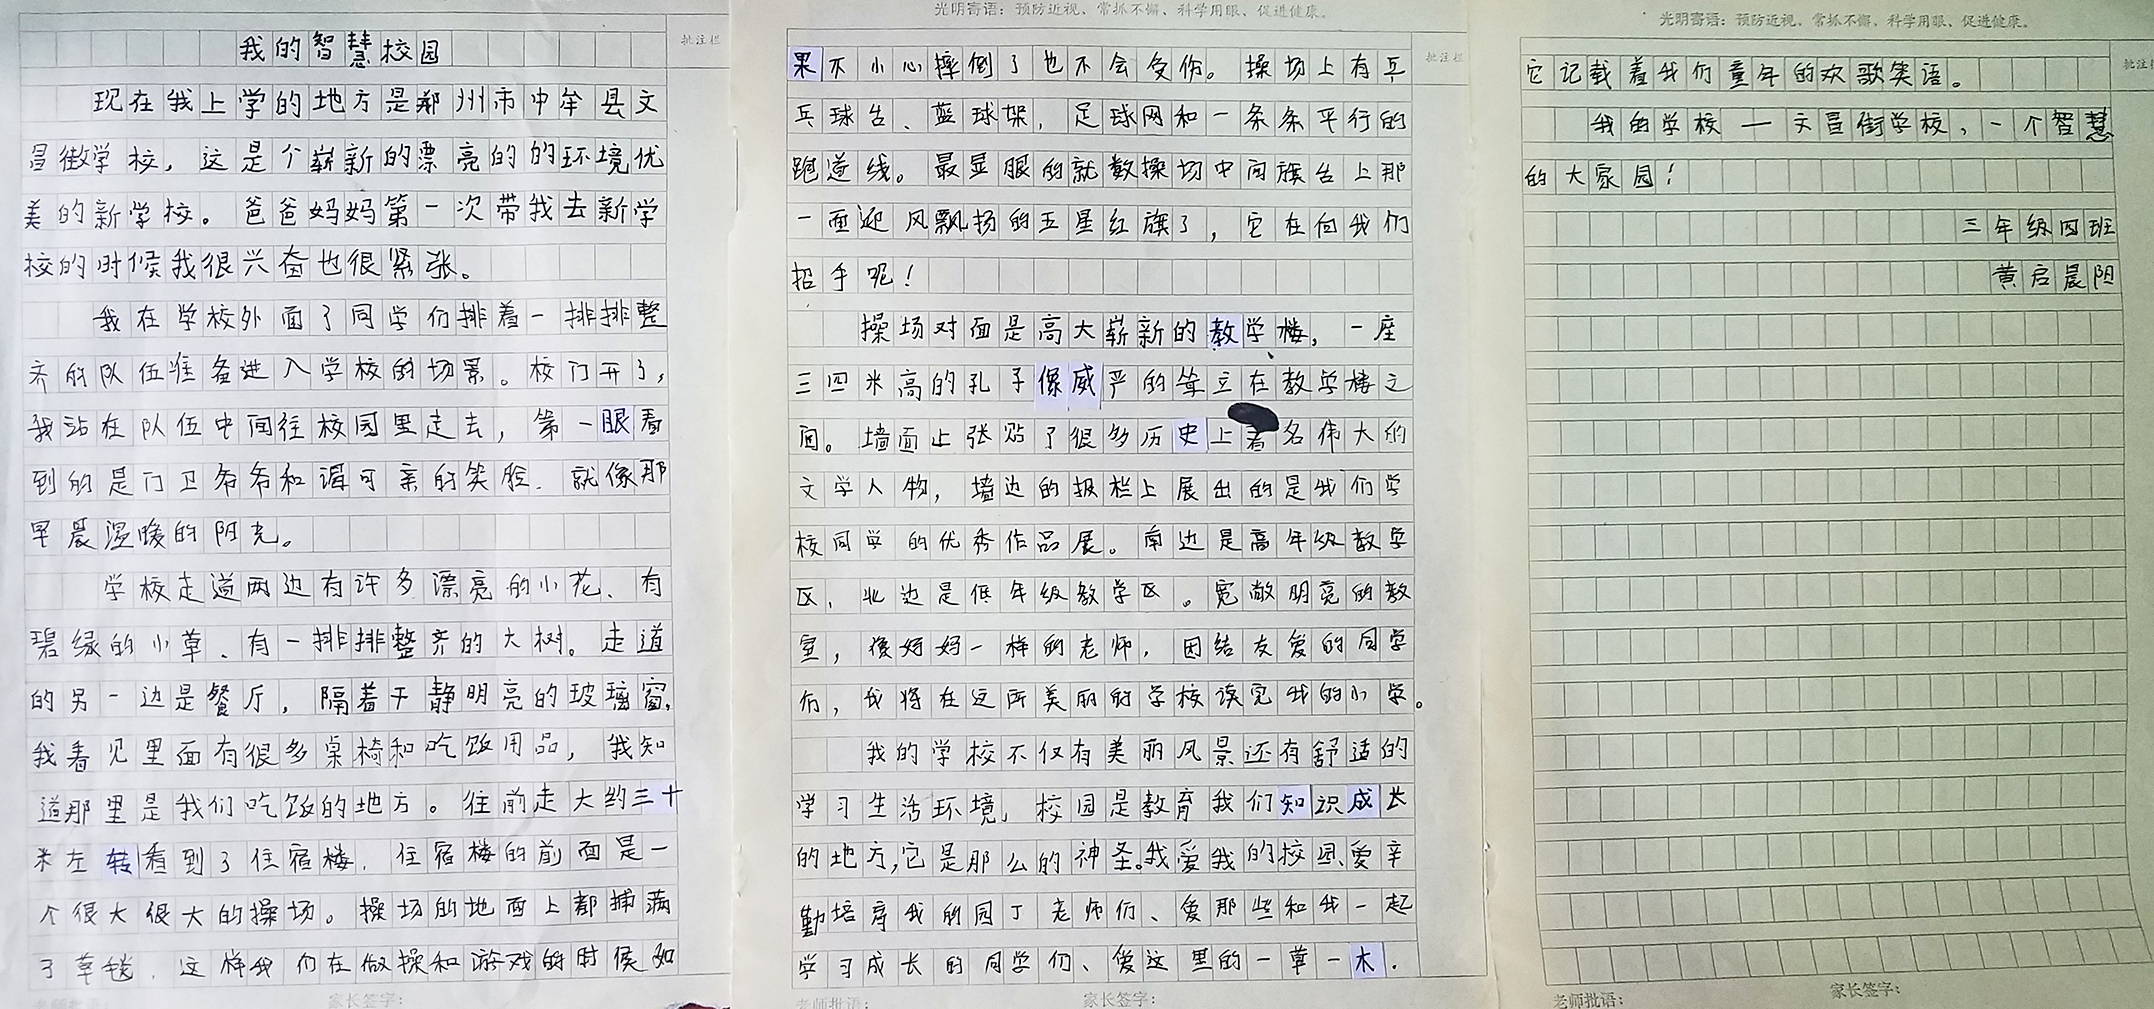 我的智慧校园
批注栏
现在我上学的地方是郑州市中牟县文
昌街学校，这是个崭新的漂亮的的环境优
美的新学校。爸爸妈妈第一次带我去新学
校的时候我很兴奋也很紧张。
我在学校外面了同学们排着一排排整
齐的队伍准备进入学校的场景。校门开了，
我站在队伍中间往校园里走去，第一眼看
到的是门卫爷爷和谒可亲的笑脸．就像那
早晨温暖的阴光。
学校走道两边有许多漂亮的小花、有
碧绿的小草、有一排排整齐的大树。走道
的另一边是餐厅，隔着干静明亮的玻璃窗，
我看见里面有很多桌椅和吃饭用品，我知
道那里是我们吃饭的地方。往前走大约三十
米左转看到了住宿楼．住宿楼的前面是一
个很大很大的操场。操场的地面上都捕满
了草毯．这样我们在做操和游戏的时候如
老师批语：
家长签字：
光明寄语：预防近视、常抓不懈、科学用眼、促进健康。
批注栏
果不小心摔倒了也不会受伤。操场上有乒
乓球台、蓝球架，足球网和一条条平行的
跑道线。最显眼的就数操场中间旗台上那
一面迎风飘扬的五星红旗了，它在向我们
招手呢！
操场对面是高大崭新的教学楼，一座
三四米高的孔子像威严的耸立在教学楼之
间。墙面上张贴了很多历史上著名伟大的
文学人物，墙边的报栏上展出的是我们学
校同学的优秀作品展。南边是高年级教学
区，北边是低年级教学区。宽敞明亮的教
室，像妈妈一样的老师，团结友爱的同学
们，我将在这所美丽的学校读完我的小学。
我的学校不仅有美丽风景还有舒适的
学习生活环境，校园是教育我们知识成长
的地方，它是那么的神圣。我爱我的校园、爱辛
勤培育我的园丁老师们、爱那些和我一起
学习成长的同学们、爱这里的一草一木．
老师批语：
家长签字：
光明寄语：预防近视、常抓不懈、科学用眼、促进健康。
批注栏
它记载着我们童年的欢歌笑语。
我的学校一文昌街学校，一个智慧
的大家园！
三年级四班
黄启晨阳
老师批语：
家长签字：